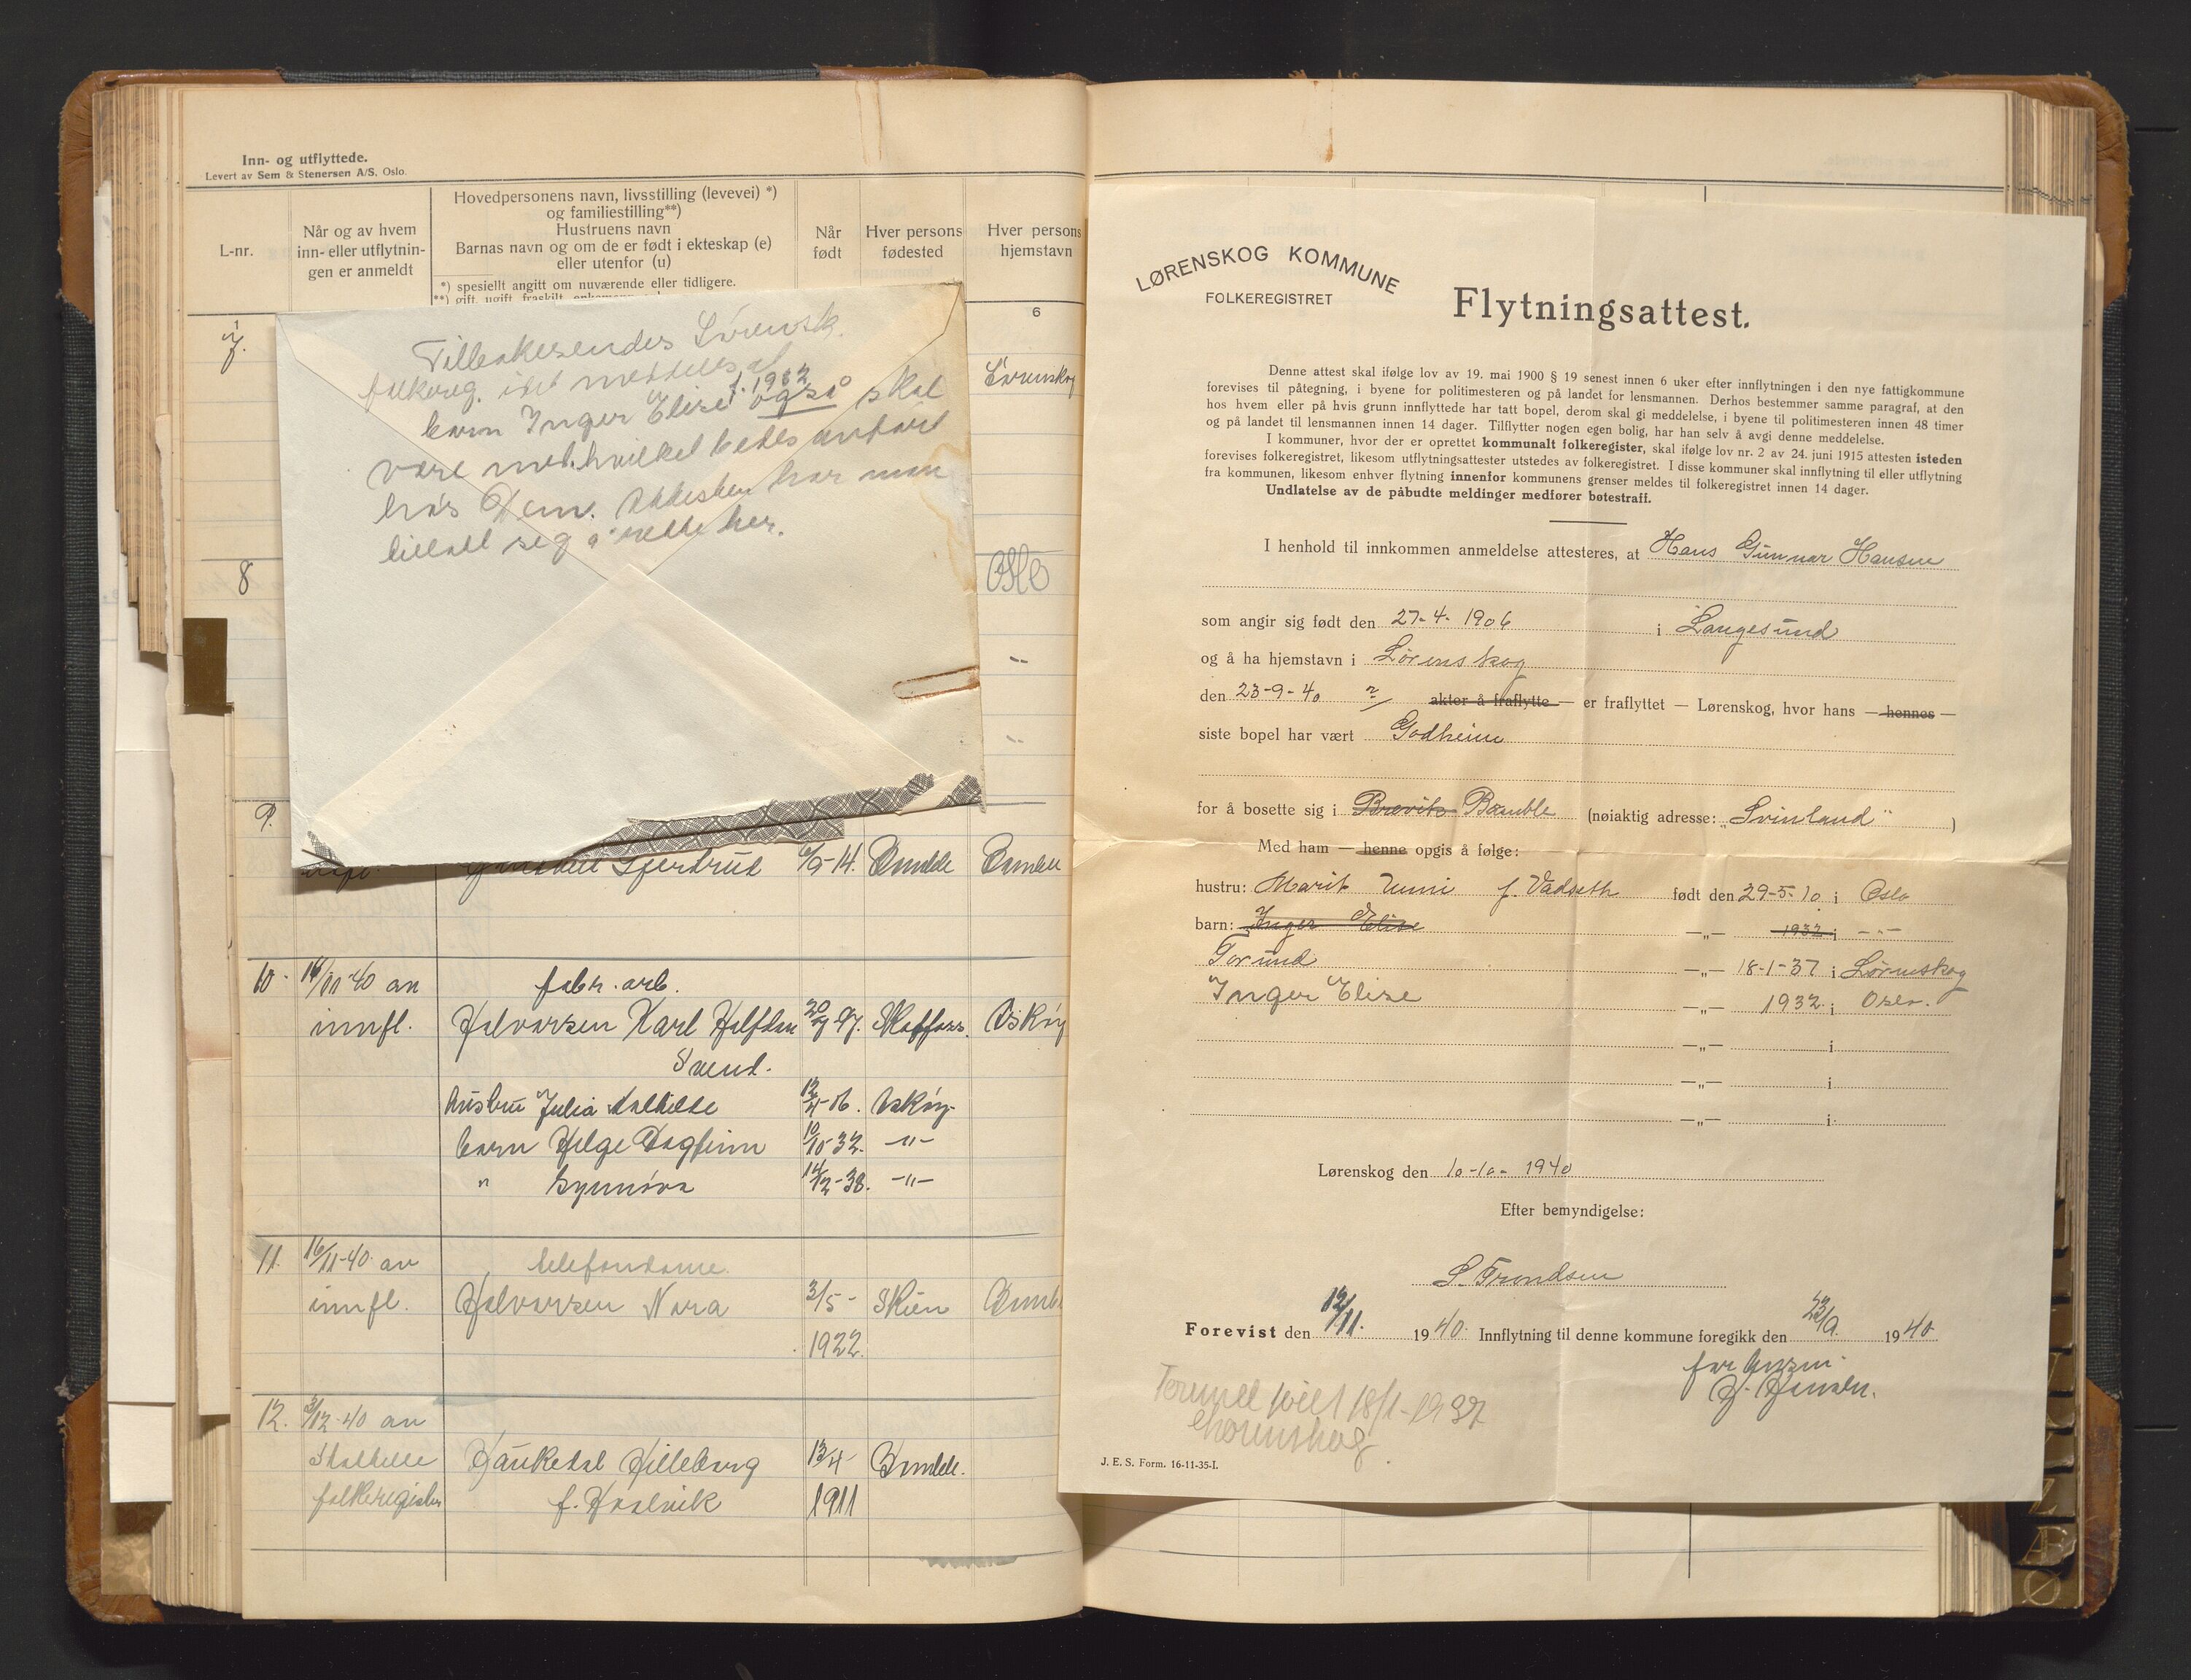 Inn- og utflyttede.
Levert av Sem & Stenersen A/S, Oslo.
L-nr.
Når og av hvem
inn- eller utflytnin-
gen er anmeldt
Hovedpersonens navn, livsstilling (levevei) *)
og familiestilling**)
Hustruens navn
Barnas navn og om de er født i ekteskap (e)
eller utenfor (u)
*) spesiellt angitt om nuværende eller tidligere.
Når
født
Hver persons
fødested
Hver persons
hjemstavn
6
7.
Lørenskog
8
Oslo
9.
Tilbakesendes Lørensk.
folkereg. idet meddeles at
barn Inger Elise f. 1932 også skal
være med. hvilket bedes anført
hos Dem. Attesten har man
tillatt seg å rette her.
Gjertrud 6/9-14. Bamble Bamble
10. 14/11-40 an fabr. arb.
innfl. Halvorsen Karl Halfdan 97. Skotfoss. Askøy
Svend.
hustru Julia Mathilde 12/4-06. Askøy
barn Helge Dagfinn 10/10-32. -"-
" Synnøva 14/2-38. -"-
11. 16/11-40 an telefondame
innfl. Halvorsen Nora 3/5- Skien
1922.
12. 3/12-40 an
Stathelle Haukedal Hilleborg 13/4- Bamble.
folkeregister f. 1911
LØRENSKOG KOMMUNE
FOLKEREGISTRET
Flytningsattest.
Denne attest skal ifølge lov av 19. mai 1900 § 19 senest innen 6 uker efter innflytningen i den nye fattigkommune
forevises til påtegning, i byene for politimesteren og på landet for lensmannen. Derhos bestemmer samme paragraf, at den
hos hvem eller på hvis grunn innflyttede har tatt bopel, derom skal gi meddelelse, i byene til politimesteren innen 48 timer
og på landet til lensmannen innen 14 dager. Tilflytter nogen egen bolig, har han selv å avgi denne meddelelse.
I kommuner, hvor der er oprettet kommunalt folkeregister, skal ifølge lov nr. 2 av 24. juni 1915 attesten isteden
forevises folkeregistret, likesom utflytningsattester utstedes av folkeregistret. I disse kommuner skal innflytning til eller utflytning
fra kommunen, likesom enhver flytning innenfor kommunens grenser meldes til folkeregistret innen 14 dager.
Undlatelse av de påbudte meldinger medfører bøtestraff.
I henhold til innkommen anmeldelse attesteres, at Hans Gunnar Hansen
som angir sig født den 27-4-1906 i Langesund
og å ha hjemstavn i Lørenskog
den 23-9-40 akter å fraflytte — er fraflyttet — Lørenskog, hvor hans — hennes —
siste bopel har vært Godheim
for å bosette sig i Brevik Bamble (nøiaktig adresse: „Svinland")
Med ham — henne opgis å følge:
hustru: Marit Unni f. Vadseth født den 29-5-10 i Oslo
barn: Inger Elise —„— 1932 i -"-
Torund —„— 18-1-37 i Lørenskog
Inger Elise —„— 1932 i Oslo.
—„— i
—„— i
—„— i
Lørenskog den 10-10-1940
Efter bemyndigelse:
S. Trondsen
Forevist den 12/11. 1940. Innflytning til denne kommune foregikk den 23/9. 1940
J. E. S. Form. 16-11-35-I.
Æ
Ø